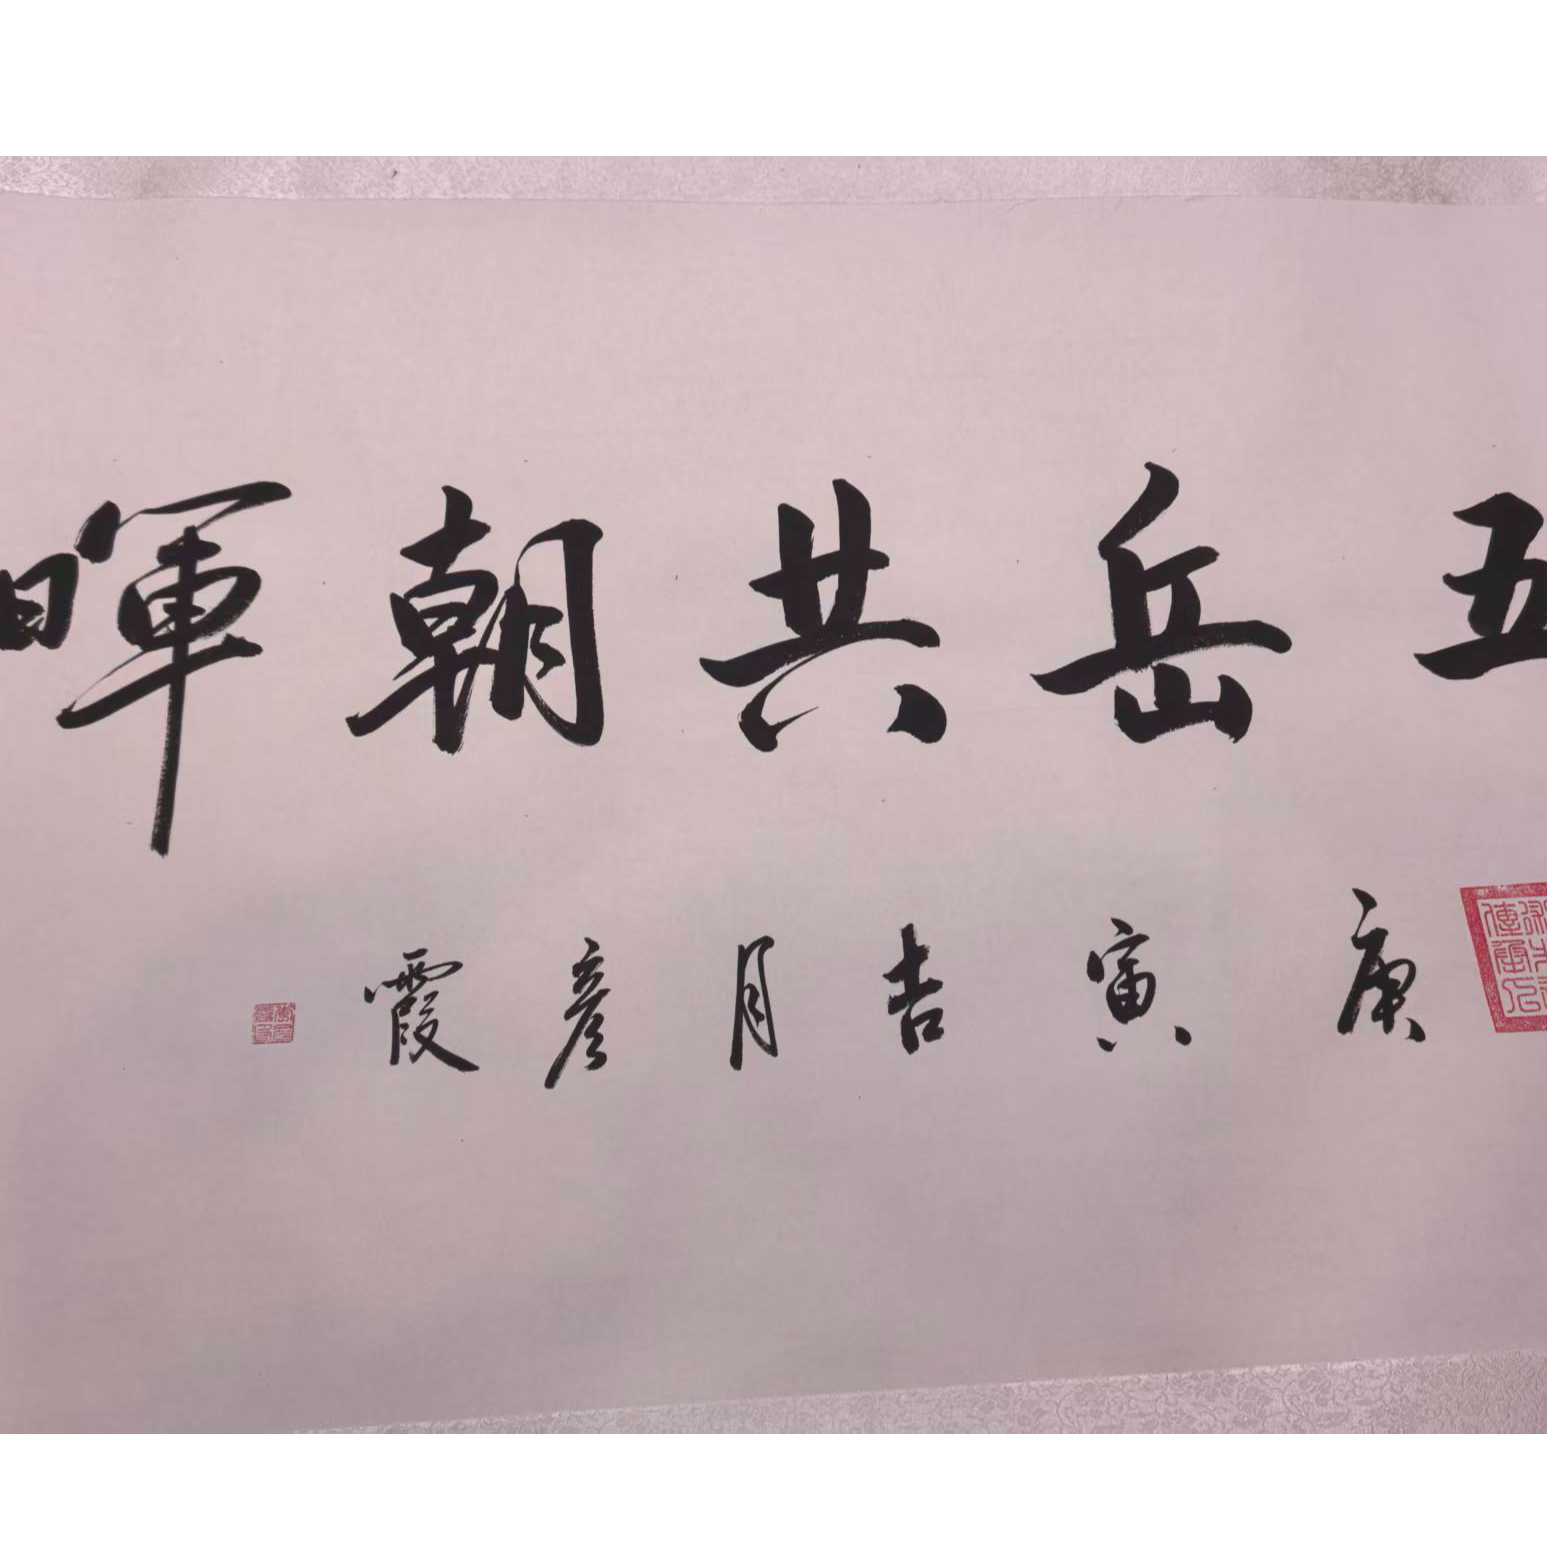 五岳共朝暉
庚寅吉月彦霞